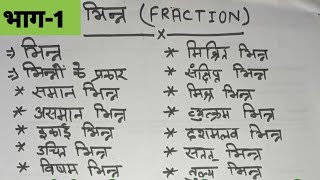 भाग-1
भिन्न (FRACTION)
x
⇒ भिन्न
⇒ भिन्नों के प्रकार
* समान भिन्न
* असमान भिन्न
* इकाई भिन्न
* उचित भिन्न
* विषम भिन्न
* मिश्रित भिन्न
* संक्षिप्त भिन्न
* मिश्र भिन्न
* व्युत्क्रम भिन्न
* दशमलव भिन्न
* सतत् भिन्न
* तुल्य भिन्न